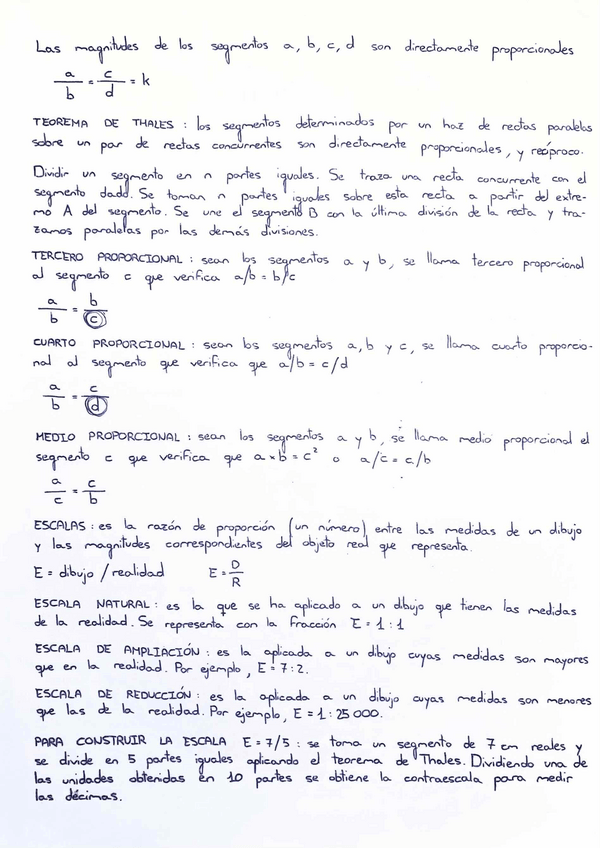 Las magnitudes de los segmentos a, b, c, d son directamente proporcionales
a/b = c/d = k
TEOREMA DE THALES : los segmentos determinados por un haz de rectas paralelas
sobre un par de rectas concurrentes son directamente proporcionales, y recíproco.
Dividir un segmento en n partes iguales. Se traza una recta concurrente con el
segmento dado. Se toman n partes iguales sobre esta recta a partir del extre-
mo A del segmento. Se une el segmento B con la última división de la recta y tra-
zamos paralelas por las demás divisiones.
TERCERO PROPORCIONAL : sean los segmentos a y b, se llama tercero proporcional
al segmento c que verifica a/b = b/c
a/b = b/c
CUARTO PROPORCIONAL : sean los segmentos a, b y c, se llama cuarto proporcio-
nal al segmento que verifica que a/b = c/d
a/b = c/d
MEDIO PROPORCIONAL : sean los segmentos a y b, se llama medio proporcional el
segmento c que verifica que a × b = c² o a/c = c/b
a/c = c/b
ESCALAS : es la razón de proporción (un número) entre las medidas de un dibujo
y las magnitudes correspondientes del objeto real que representa.
E = dibujo / realidad E = D/R
ESCALA NATURAL : es la que se ha aplicado a un dibujo que tienen las medidas
de la realidad. Se representa con la fracción E = 1 : 1
ESCALA DE AMPLIACIÓN : es la aplicada a un dibujo cuyas medidas son mayores
que en la realidad. Por ejemplo, E = 7 : 2.
ESCALA DE REDUCCIÓN : es la aplicada a un dibujo cuyas medidas son menores
que las de la realidad. Por ejemplo, E = 1 : 25 000.
PARA CONSTRUIR LA ESCALA E = 7/5 : se toma un segmento de 7 cm reales y
se divide en 5 partes iguales aplicando el teorema de Thales. Dividiendo una de
las unidades obtenidas en 10 partes se obtiene la contraescala para medir
las décimas.